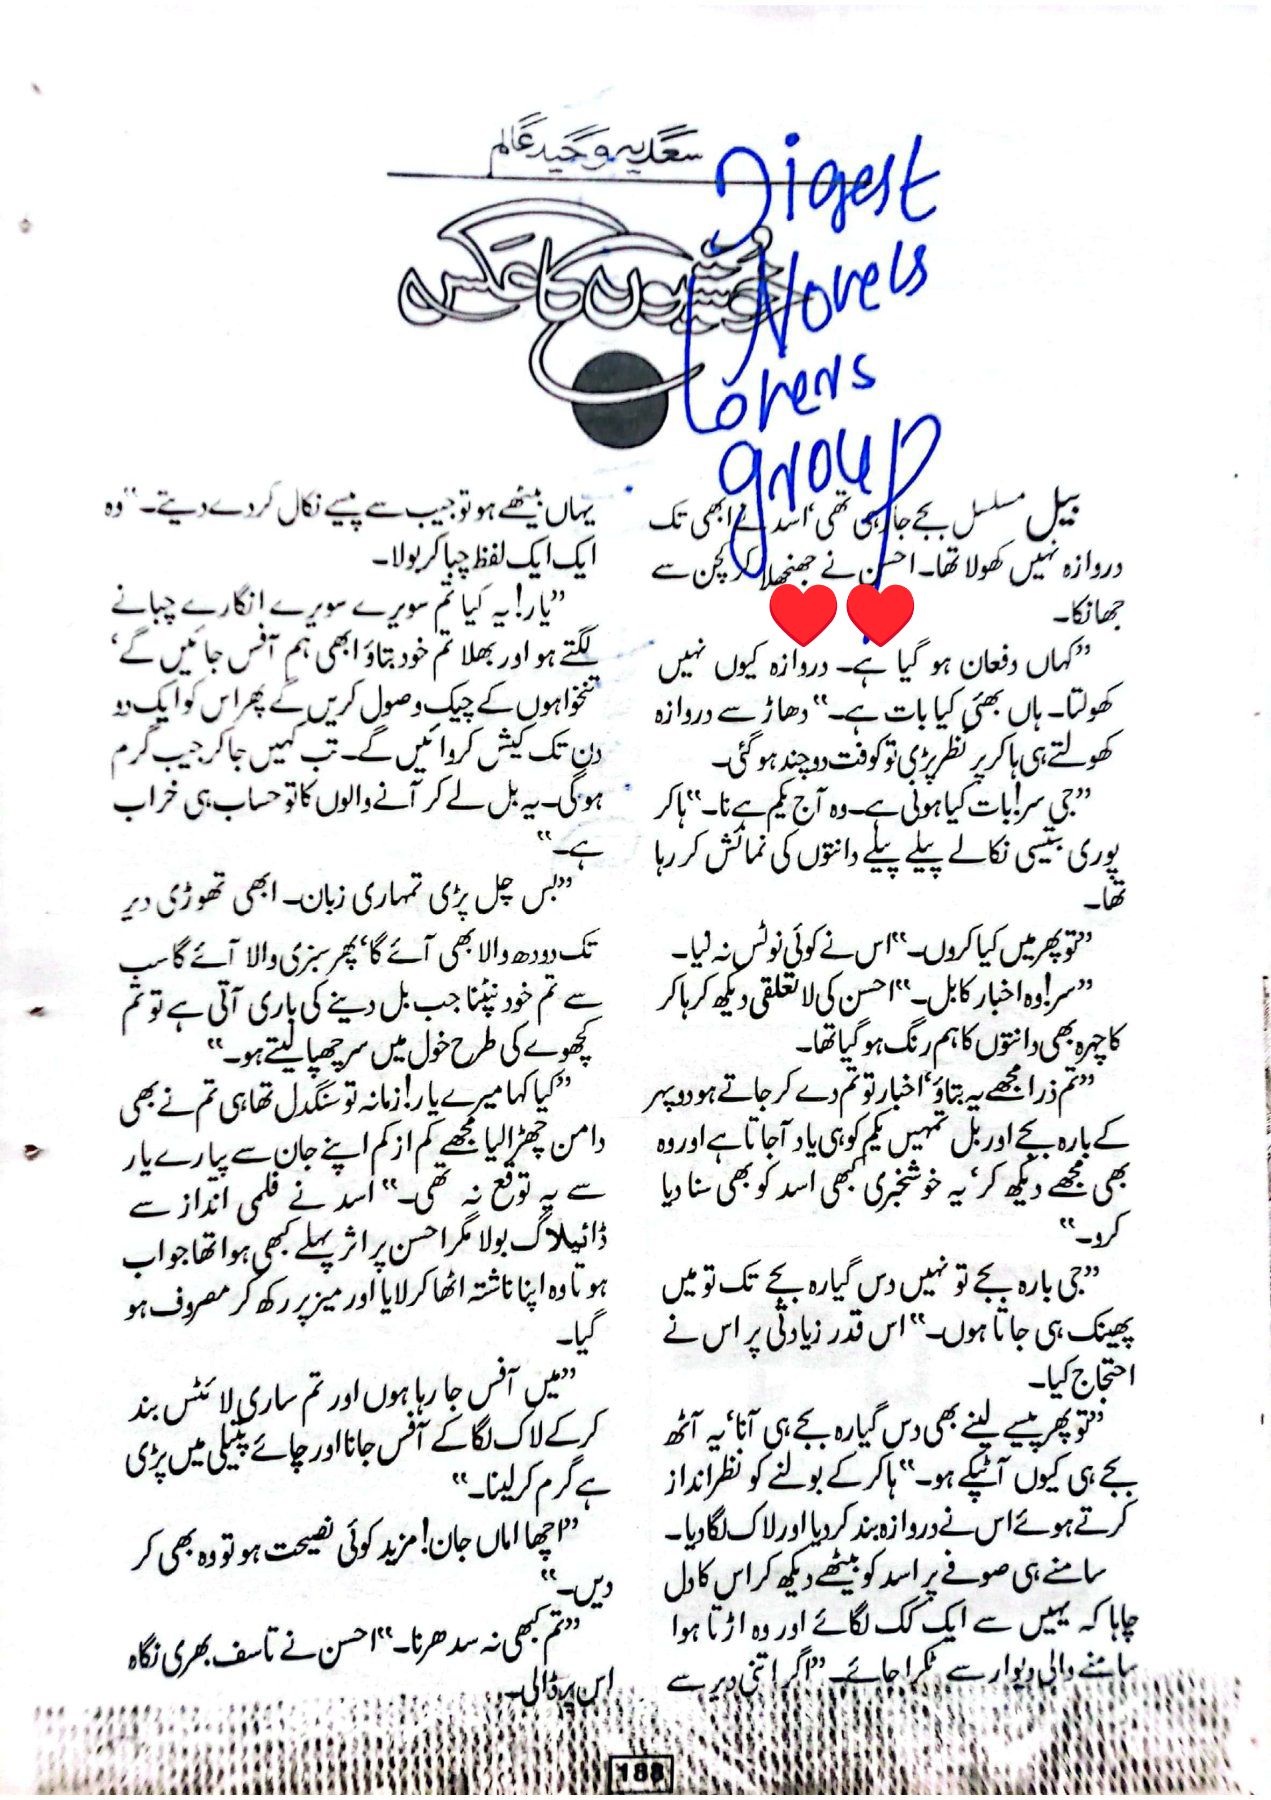 سعدیہ وحید عالم
خوشیوں کا عکس
Digest
Novels
Lovers
group
بیل مسلسل بجے جارہی تھی‘ اسد نے ابھی تک
دروازہ نہیں کھولا تھا۔ احسن نے جھنجھلا کر کچن سے
جھانکا۔
”کہاں دفعان ہو گیا ہے۔ دروازہ کیوں نہیں
کھولتا۔ ہاں بھئی کیا بات ہے۔“ دھاڑ سے دروازہ
کھولتے ہی ہاکر پر نظر پڑی تو کوفت دوچند ہو گئی۔
”جی سر! بات کیا ہونی ہے۔ وہ آج یکم ہے نا۔“ ہاکر
پوری بتیسی نکالے پیلے پیلے دانتوں کی نمائش کر رہا
تھا۔
”تو پھر میں کیا کروں۔“ اس نے کوئی نوٹس نہ لیا۔
”سر! وہ اخبار کا بل۔“ احسن کی لاتعلقی دیکھ کر ہاکر
کا چہرہ بھی دانتوں کا ہم رنگ ہو گیا تھا۔
”تم ذرا مجھے یہ بتاؤ‘ اخبار تو تم دے کر جاتے ہو دوپہر
کے بارہ بجے اور بل تمہیں یکم کو ہی یاد آجاتا ہے اور وہ
بھی مجھے دیکھ کر‘ یہ خوشخبری کبھی اسد کو بھی سنا دیا
کرو۔“
”جی بارہ بجے تو نہیں دس گیارہ بجے تک تو میں
پھینک ہی جاتا ہوں۔“ اس قدر زیادتی پر اس نے
احتجاج کیا۔
”تو پھر پیسے لینے بھی دس گیارہ بجے ہی آنا‘ یہ آٹھ
بجے ہی کیوں آٹپکے ہو۔“ ہاکر کے بولنے کو نظر انداز
کرتے ہوئے اس نے دروازہ بند کر دیا اور لاک لگا دیا۔
سامنے ہی صوفے پر اسد کو بیٹھے دیکھ کر اس کا دل
چاہا کہ یہیں سے ایک کک لگائے اور وہ اڑتا ہوا
سامنے والی دیوار سے ٹکرا جائے۔ ”اگر اتنی دیر سے
یہاں بیٹھے ہو تو جیب سے پیسے نکال کر دے دیتے۔“ وہ
ایک ایک لفظ چبا کر بولا۔
”یار! یہ کیا تم سویرے سویرے انگارے چبانے
لگتے ہو اور بھلا تم خود بتاؤ ابھی ہم آفس جائیں گے‘
تنخواہوں کے چیک وصول کریں گے پھر اس کو ایک دو
دن تک کیش کروائیں گے۔ تب کہیں جا کر جیب گرم
ہوگی۔ یہ بل لے کر آنے والوں کا تو حساب ہی خراب
ہے۔“
”بس چل پڑی تمہاری زبان۔ ابھی تھوڑی دیر
تک دودھ والا بھی آئے گا‘ پھر سبزی والا آئے گا سب
سے تم خود نپٹنا جب بل دینے کی باری آتی ہے تو تم
کچھوے کی طرح خول میں سر چھپا لیتے ہو۔“
”کیا کہا میرے یار! زمانہ تو سنگدل تھا ہی تم نے بھی
دامن چھڑا لیا مجھے کم از کم اپنے جان سے پیارے یار
سے یہ توقع نہ تھی۔“ اسد نے فلمی انداز سے
ڈائیلاگ بولا مگر احسن پر اثر پہلے کبھی ہوا تھا جو اب
ہوتا وہ اپنا ناشتہ اٹھا کر لایا اور میز پر رکھ کر مصروف ہو
گیا۔
”میں آفس جا رہا ہوں اور تم ساری لائٹس بند
کر کے لاک لگا کے آفس جانا اور چائے پتیلی میں پڑی
ہے گرم کر لینا۔“
”اچھا اماں جان! مزید کوئی نصیحت ہو تو وہ بھی کر
دیں۔“
”تم کبھی نہ سدھرنا۔“ احسن نے تاسف بھری نگاہ
اس پر ڈالی۔
188